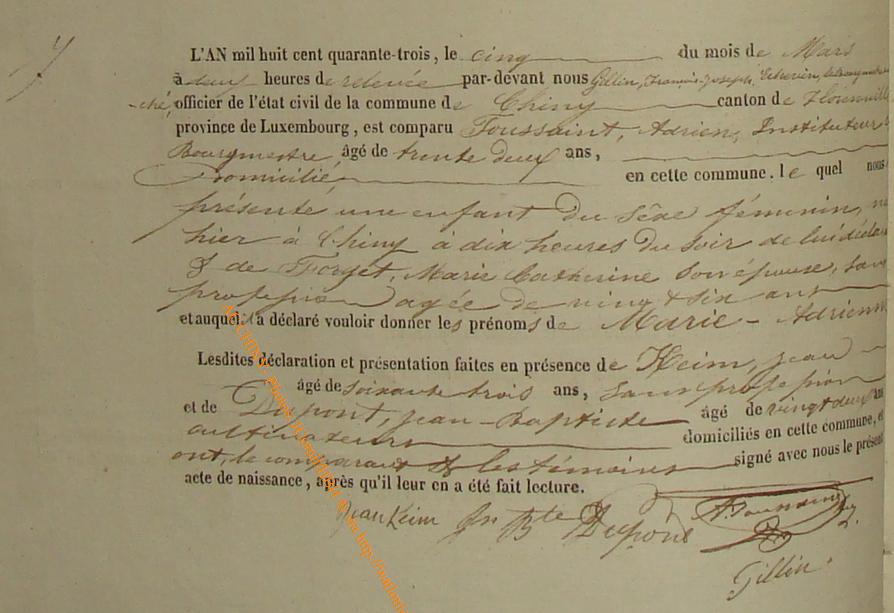 L'AN mil huit cent quarante-trois, le cinq du mois de Mars
à deux heures de relevée par-devant nous Gillin, François-Joseph, Echevin, 
-ché, officier de l'état civil de la commune de Chiny canton de Florenville
province de Luxembourg, est comparu Toussaint, Adrien, Instituteur &
Bourgmestre, âgé de trente deux ans,
Domicilié en cette commune. le quel nous
présente une enfant du sêxe féminin, né
hier à Chiny à dix heures du soir de lui déclarant
& de Forget, Marie Catherine son épouse, sans
profession agée de vingt & six ans
et auquel il a déclaré vouloir donner les prénoms de Marie - Adrienne
Lesdites déclaration et présentation faites en présence de Keim, jean
âgé de soixante trois ans, sans profession
et de Dupont, jean-Baptiste âgé de vingt & deux ans
cultivateurs domiciliés en cette commune, et
ont, le comparant & les témoins signé avec nous le présent
acte de naissance, après qu'il leur en a été fait lecture.
jean Keim Jn Bte Dupont A. Toussaint
Gillin